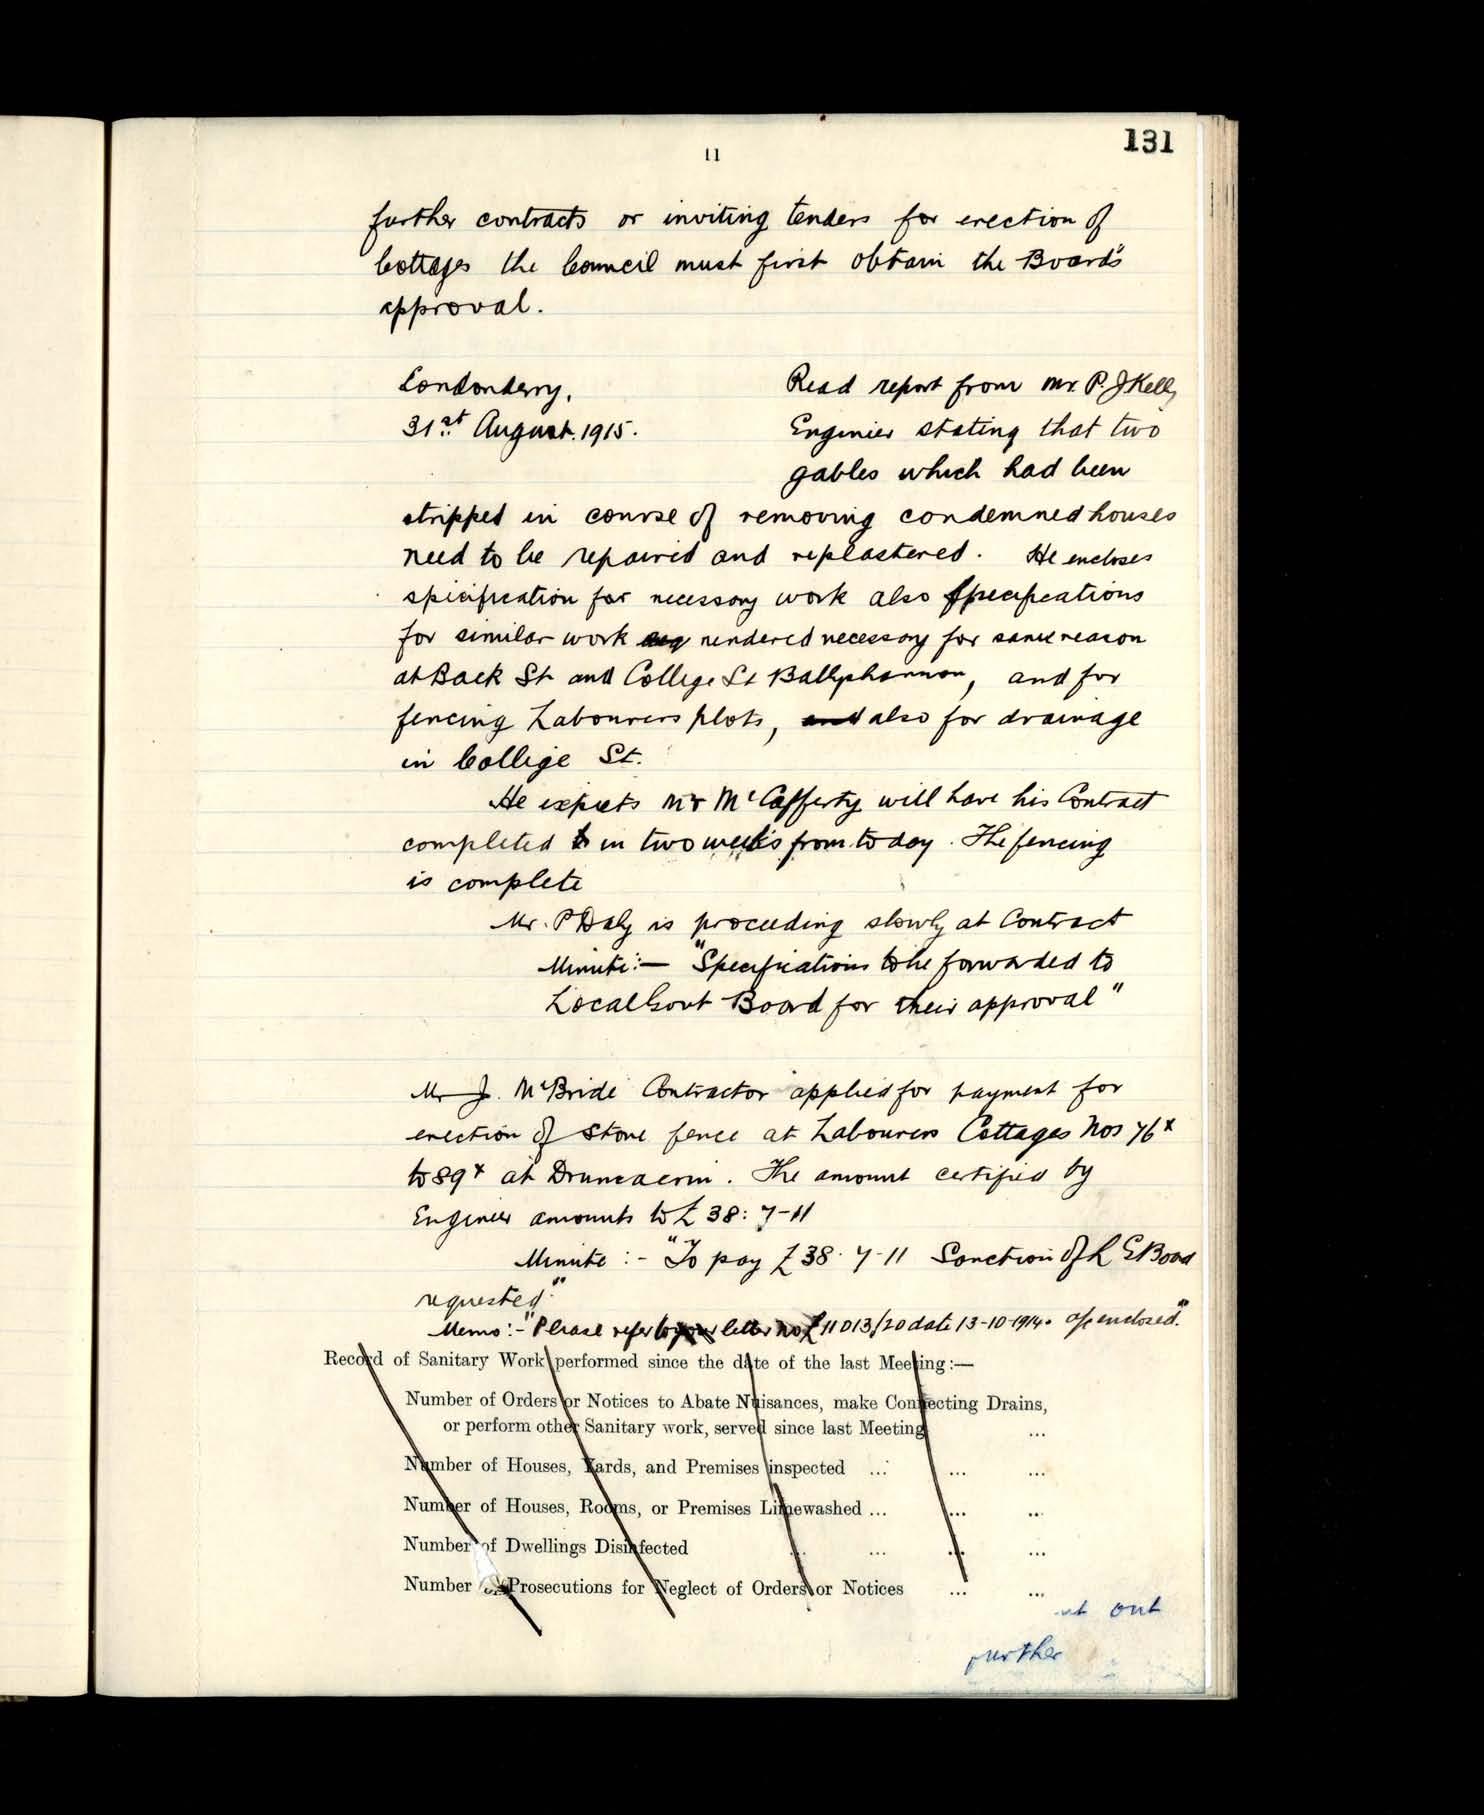 131
11
further contracts or inviting tenders for erection of
Cottages the Council must first obtain the Board's
approval.
Londonderry,
31st August. 1915.
Read report from Mr. P. J Kelly
Engineer stating that two
gables which had been
stripped in course of removing condemned houses
need to be repaired and replastered. He encloses
specification for necessary work also specifications
for similar work rendered necessary for same reason
at Back St and College St Ballyshannon, and for
fencing Labourers plots, and also for drainage
in College St.
He expects Mr McCafferty will have his Contract
completed in two weeks from to day. The fencing
is complete
Mr. P Daly is proceeding slowly at Contract
Minute:— "Specifications to be forwarded to
Local Govt Board for their approval"
Mr J. McBride Contractor applied for payment for
erection of stone fence at Labourers Cottages Nos 76x
to 89x at Drumacrin. The amount certified by
Engineer amounts to £38:7-11
Minute:- "To pay £38.7-11 Sanction of L G Board
requested"
Memo:- "Please refer to your letter no 11013/20 date 13-10-1914. enclosed."
Record of Sanitary Work performed since the date of the last Meeting:—
Number of Orders or Notices to Abate Nuisances, make Connecting Drains,
or perform other Sanitary work, served since last Meeting ...
Number of Houses, Yards, and Premises inspected ... ... ...
Number of Houses, Rooms, or Premises Limewashed ... ... ...
Number of Dwellings Disinfected ... ... ... ...
Number of Prosecutions for Neglect of Orders or Notices ... ...
out
further